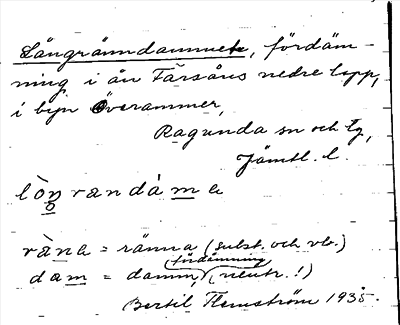 Långränndammet, fördäm-
ning i ån Färsåns nedre lopp,
i byn Överammer,
Ragunda sn och tg,
Jämtl. l.
lòŋrandàma
ràna = ränna (subst. och vb.)
fördämning
dam = damm, (neutr.!)
Bertil Flemström 1935.